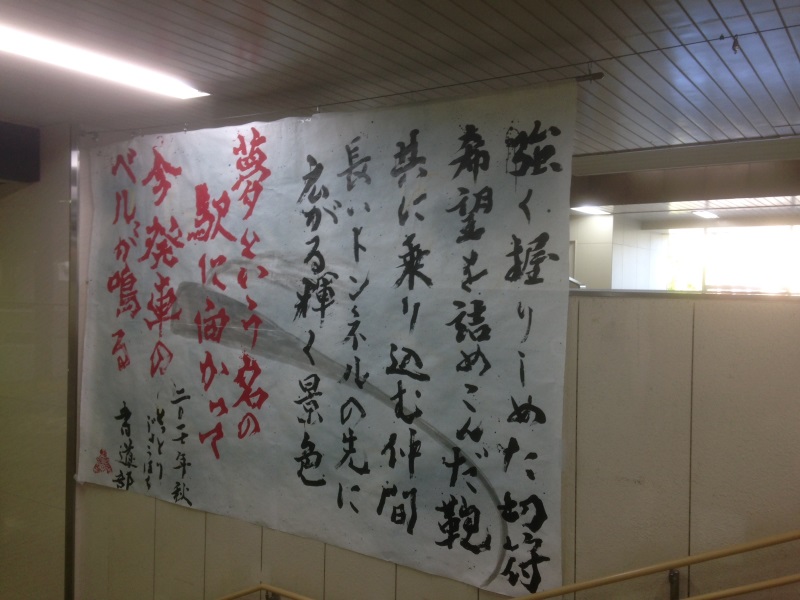 強く握りしめた切符
希望を詰めこんだ鞄
共に乗り込む仲間
長いトンネルの先に
広がる輝く景色
夢という名の
駅に向かって
今発車の
ベルが鳴る
書道部